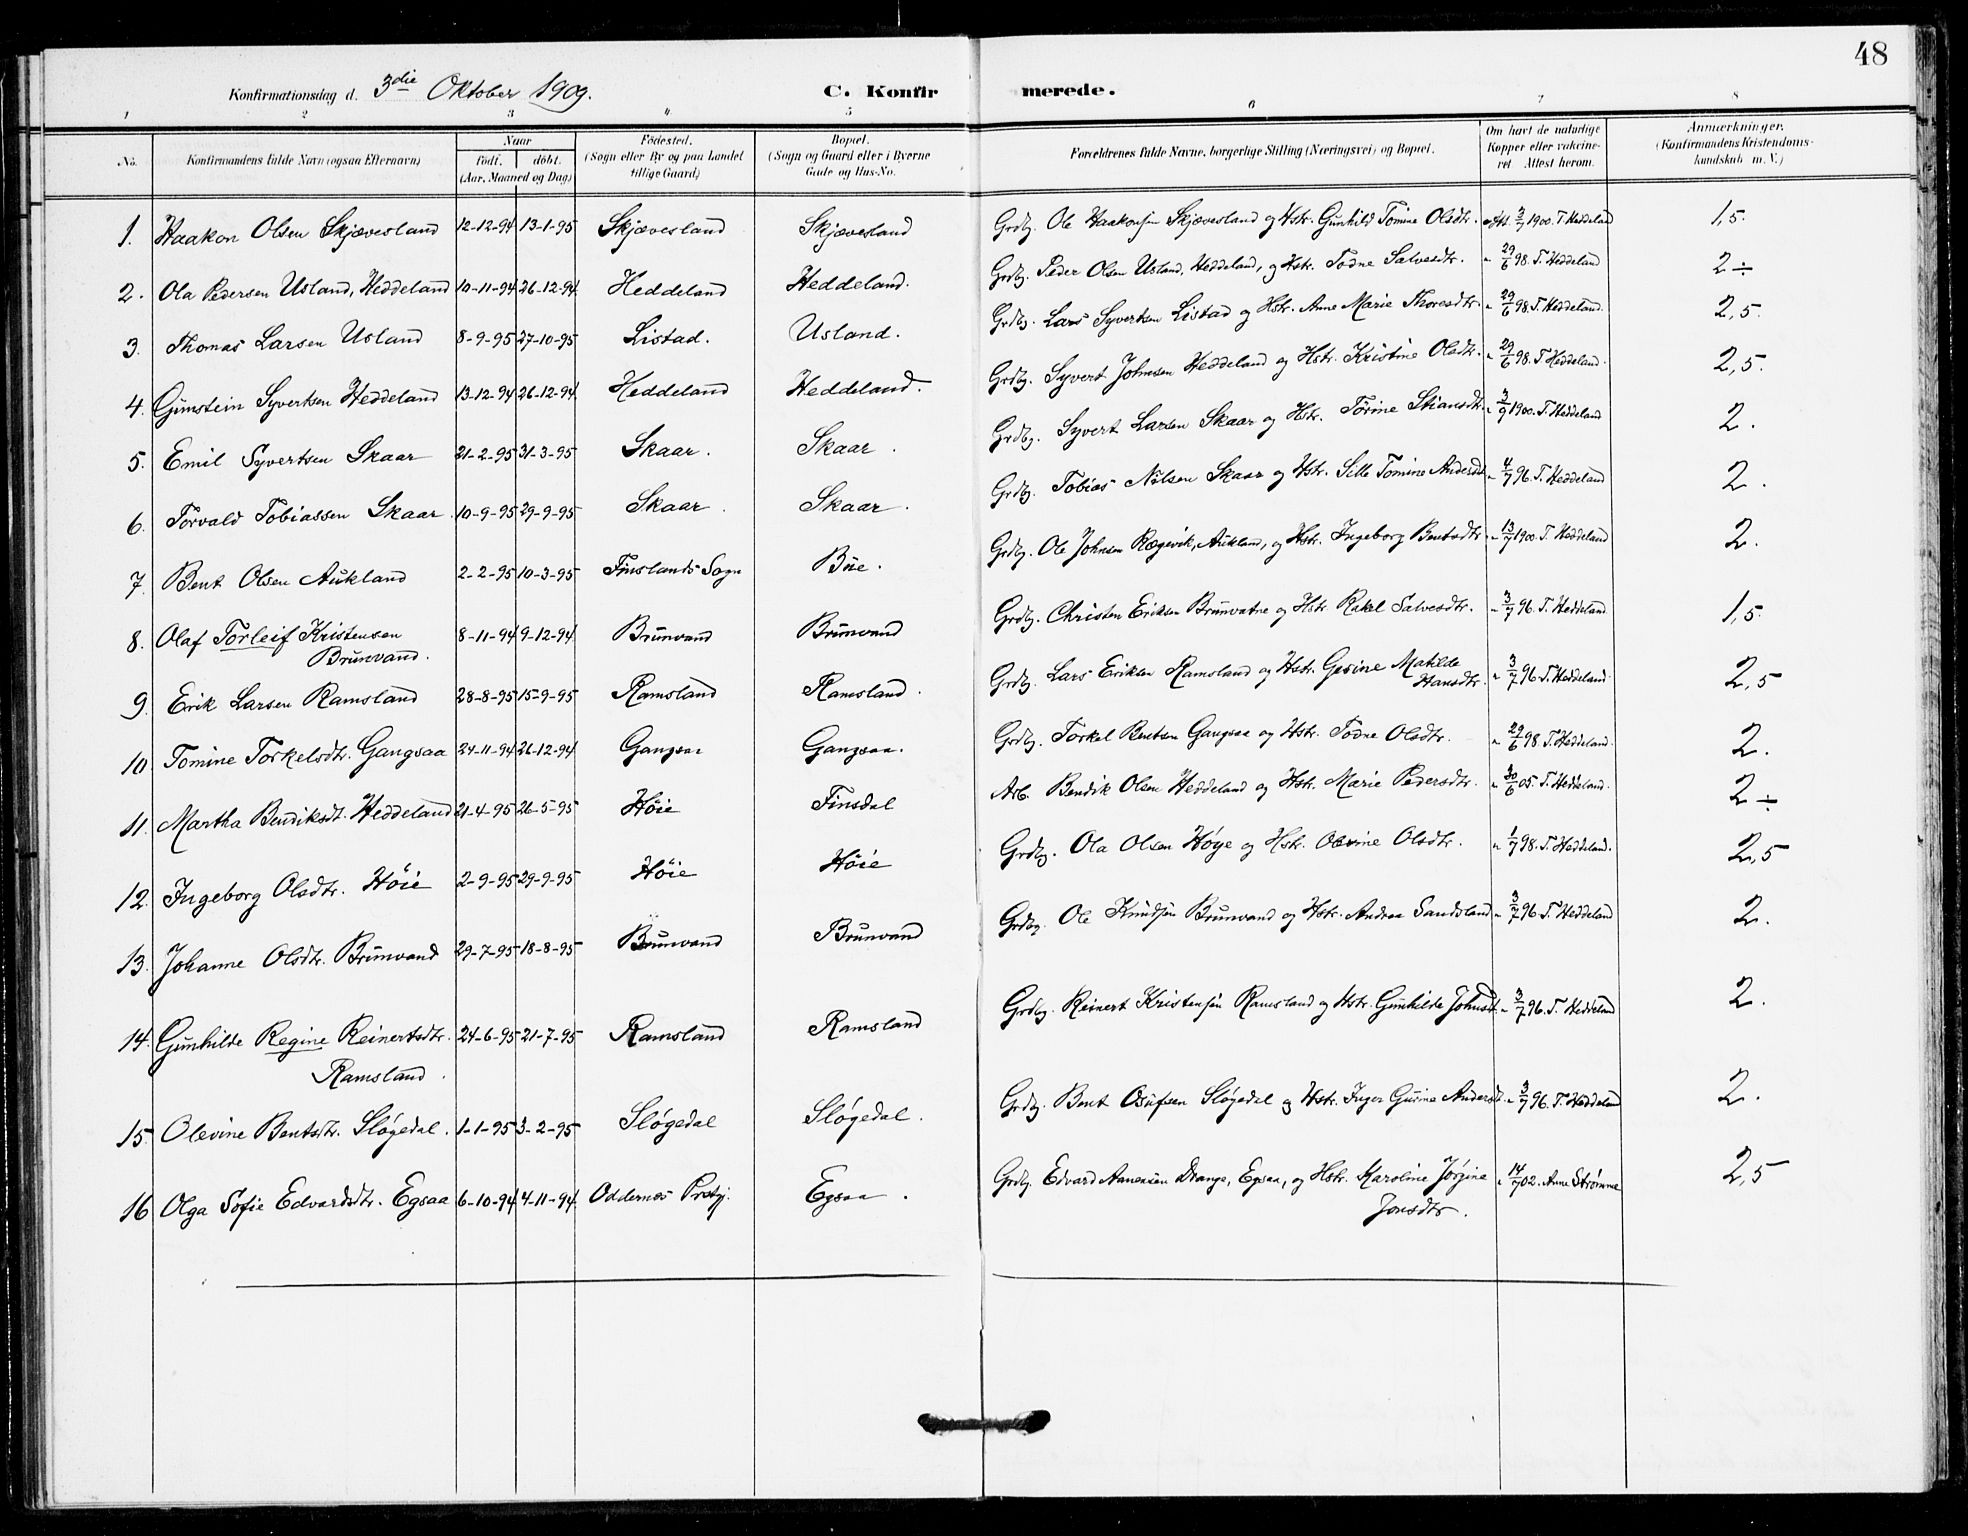 48
Konfirmationsdag d. 3die Oktober 1909. C. Konfir merede.
1 2 3 4 5 6 7 8
No. Konfirmandens fulde Navn (ogsaa Efternavn) Naar født. døbt. (Aar, Maaned og Dag) Fødested. (Sogn eller By og paa Landet tillige Gaard) Bopæl. (Sogn og Gaard eller i Byerne Gade og Hus-No. Forældrenes fulde Navne, borgerlige Stilling (Næringsvei) og Bopæl. Om havt de naturlige Kopper eller vakcineret Attest herom. Anmærkninger. (Konfirmandens Kristendomskundskab m. V.)
1. Haakon Olsen Skjævesland 12-12-94 13-1-95 Skjævesland Skjævesland Grdbg. Ole Haakonsen Skjævesland og Hstr. Gunhild Tomine Olsdtr. Att. 3/7 1900. T. Heddeland 1,5.
2. Ola Pedersen Usland, Heddeland 10-11-94 26-12-94 Heddeland Heddeland. Grdbg. Peder Olsen Usland, Heddeland, og Hstr. Todne Salvesdtr. " 29/6 98. T. Heddeland 2 ÷
3. Thomas Larsen Usland 8-9-95 27-10-95 Listad. Usland. Grdbg. Lars Syvertsen Listad og Hstr. Anne Marie Thoresdtr. " 29/6 98. T. Heddeland. 2,5.
4. Gunstein Syvertsen Heddeland 13-12-94 26-12-94. Heddeland Heddeland. Grdbg. Syvert Johnsen Heddeland og Hstr. Kristine Olsdtr. " 29/6 98. T. Heddeland. 2,5.
5. Emil Syvertsen Skaar 21-2-95 31-3-95 Skaar. Skaar. Grdbg. Syvert Larsen Skaar og Hstr. Torine Stiansdtr. " 3/9 1900. T. Heddeland 2.
6. Torvald Tobiassen Skaar. 10-9-95 29-9-95 Skaar. Skaar. Grdbg. Tobias Nilsen Skaar og Hstr. Sille Tomine Andersdt. " 4/7 96. T. Heddeland 2.
7. Bent Olsen Aukland 2-2-95 10-3-95 Finslands Sogn Bøe. Grdbg. Ole Johnsen Røgevik, Aukland, og Hstr. Ingeborg Bentsdtr. " 13/7 1900. T. Heddeland 2.
8. Olaf Torleif Kristensen 8-11-94 9-12-94 Brunvand Brunvand Grdbg. Christen Eriksen Brunvatne og Hstr. Rakel Salvesdtr. " 3/7 96. T. Heddeland. 1,5.
Brunvand.
9. Erik Larsen Ramsland 28-8-95 15-9-95 Ramsland Ramsland. Grdbg. Lars Eriksen Ramsland og Hstr. Gesine Matilde Hansdtr. " 3/7 96. T. Heddeland. 2,5
10. Tomine Torkelsdtr. Gangsaa 24-11-94 26-12-94 Gangsaa Gangsaa. Grdbg. Torkel Bentsen Gangsaa og Hstr. Todne Olsdtr. " 29/6 98. T. Heddeland. 2.
11. Martha Bendiksdt. Heddeland 21-4-95 26-5-95 Høie Finsdal Arb. Bendik Olsen Heddeland og Hstr. Marie Pedersdtr. " 30/6 05. T. Heddeland. 2 ÷
12. Ingeborg Olsdtr. Høie 2-9-95 29-9-95 Høie Høie Grdbg. Ola Olsen Høye og Hstr. Olevine Olsdtr. " 1/7 98. T. Heddeland. 2,5
13. Johanne Olsdtr. Brunvand 29-7-95 18-8-95 Brunvand Brunvand Grdbg. Ole Knudsen Brunvand og Hstr. Andrea Sandsland " 3/7 96. T. Heddeland 2.
14. Gunhilde Regine Reinertsdtr. 24-6-95 21-7-95 Ramsland Ramsland Grdbg. Reinert Kristensen Ramsland og Hstr. Gunhilde Johnsdt. " 3/7 96. T. Heddeland 2.
Ramsland.
15. Olevine Bentsdtr. Sløgedal. 1-1-95 3-2-95 Sløgedal Sløgedal. Grdbg. Bent Osufsen Sløgedal og Hstr. Inger Gurine Andersdt. " 3/7 96. T. Heddeland 2.
16 Olga Sofie Edvardsdtr. Egsaa 6-10-94 4-11-94. Oddernes Prstgj. Egsaa. Grdbg. Edvard Aanensen Drange, Egsaa, og Hstr. Karoline Jørgine " 14/7 02. Anne Strømme 2,5
Jonsdtr.